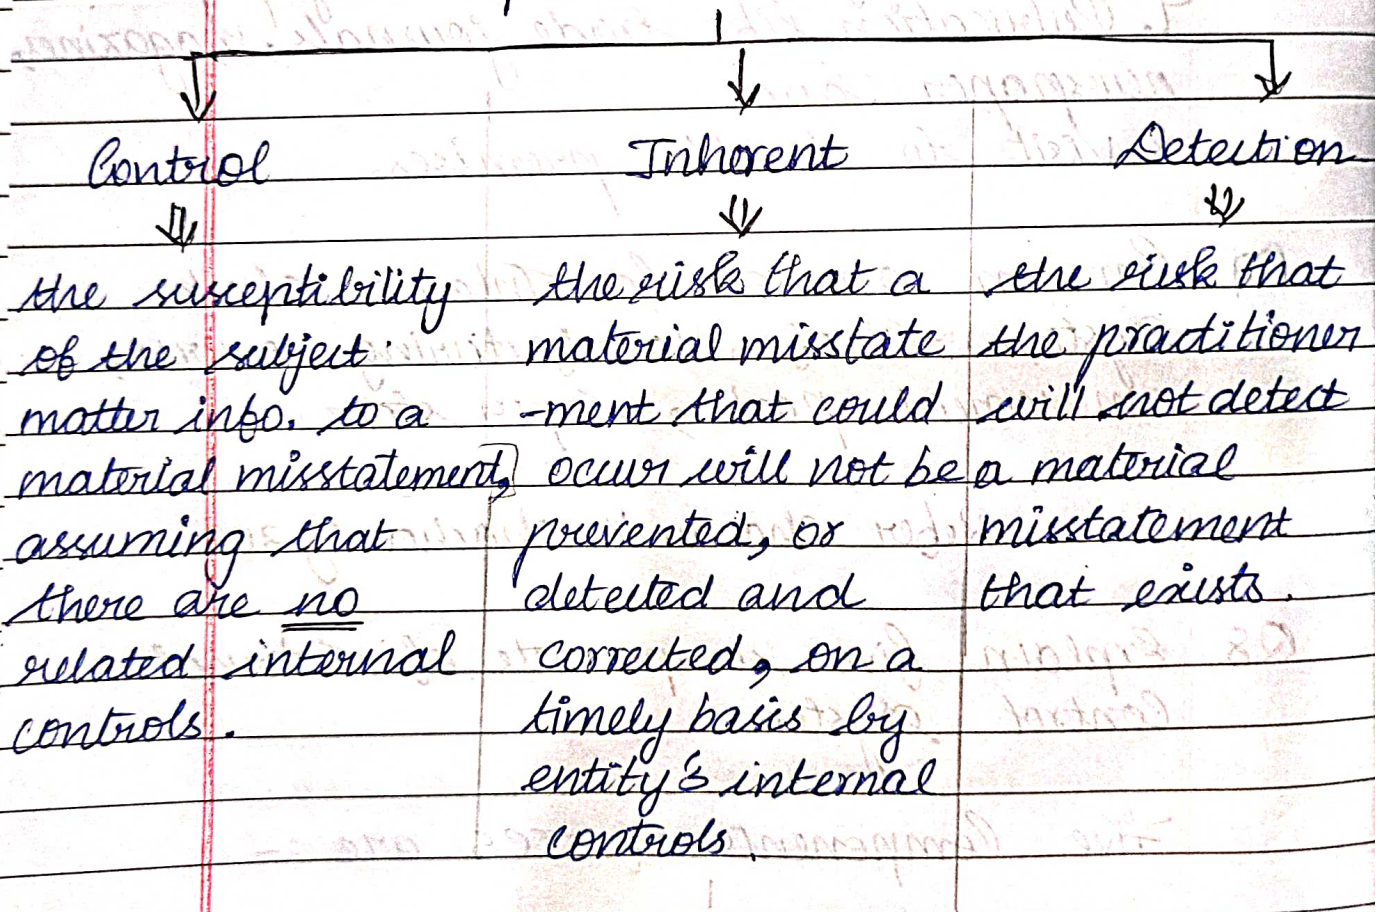 Control
Inherent
Detection
the susceptibility
of the subject
matter info. to a
material misstatement,
assuming that
there are no
related internal
controls.
the risk that a
material misstate
-ment that could
occur will not be
prevented, or
detected and
corrected, on a
timely basis by
entity's internal
controls.
the risk that
the practitioner
will not detect
a material
misstatement
that exists.